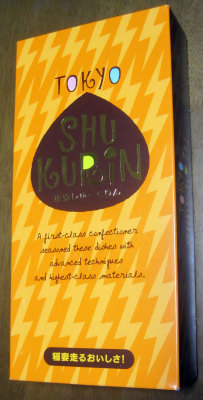 TOKYO
SHU
KURIN
A first-class confectioner
seasoned these dishes with
advanced techniques
and highest-class materials.
稲妻走るおいしさ!